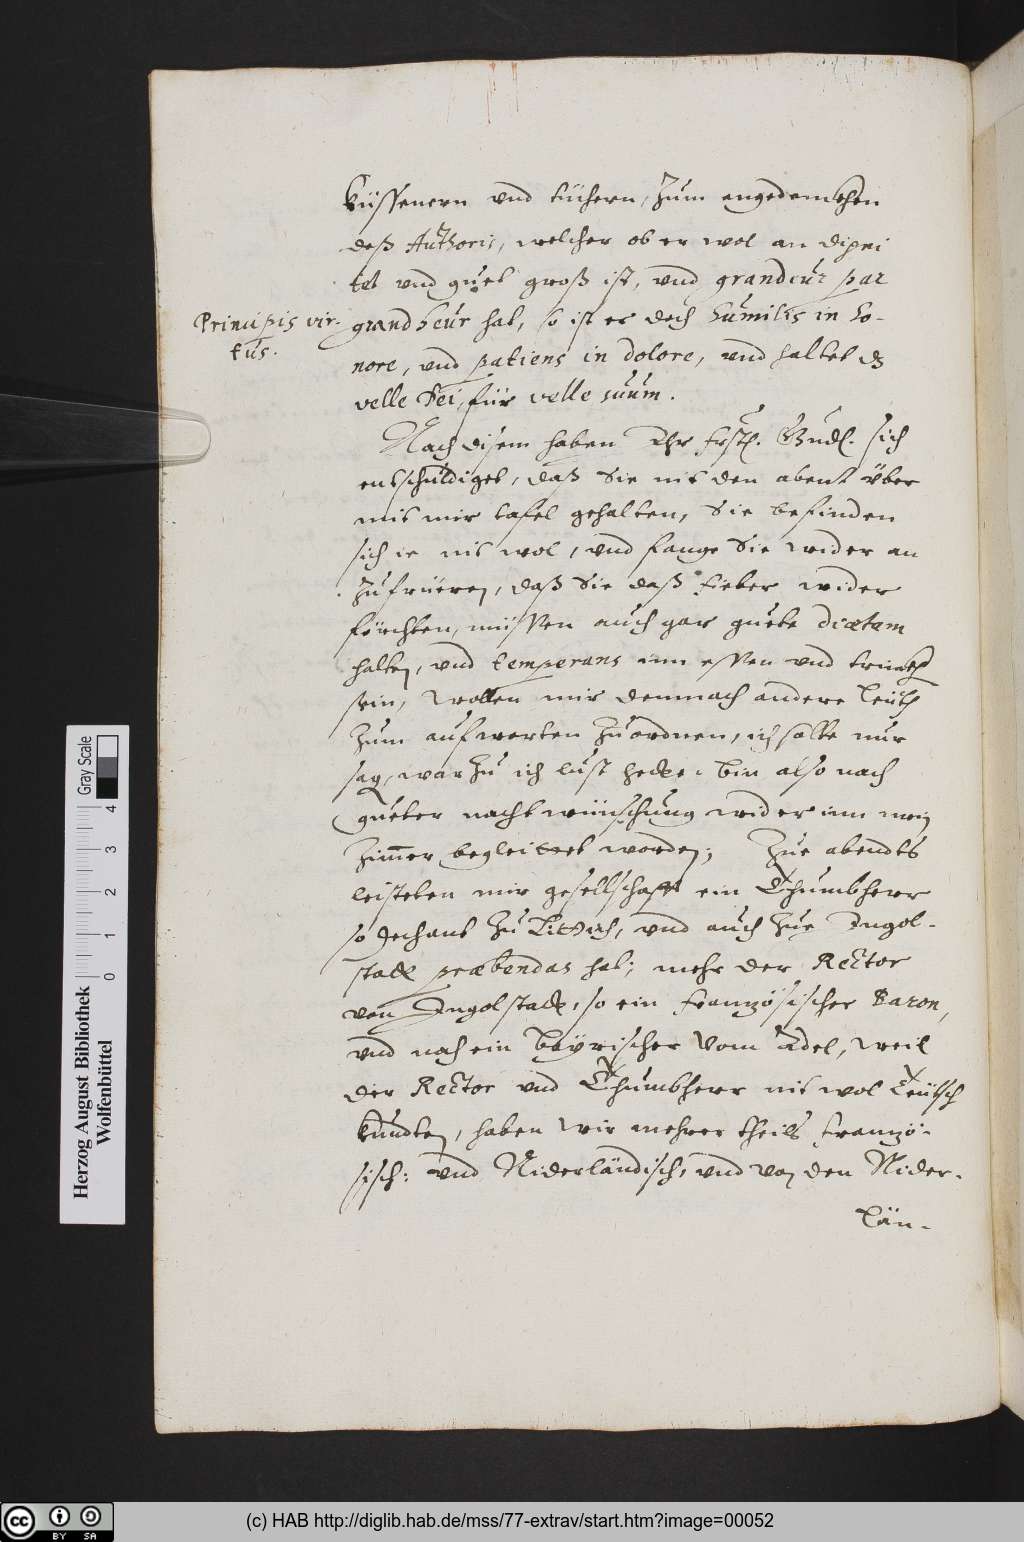 küssenern vnd tüchern, zum angedenckhen
deß Authoris, welcher ob er wol an digni
tet vnd guet groß ist, vnd grandeur par
Principis vir-
tus.
grandheur hat, so ist er doch humilis in ho-
nore, vnd patiens in dolore, vnd haltet dz
velle Dei, für velle suum.
Nach disem haben Ihr Frstl. Gndl. sich
entschuldiget, daß Sie nit den abent über
mit mir tafel gehalten, Sie befinden
sich ie nit wol, vnd fange Sie wider an
zufrüeren, daß Sie daß fieber wider
förchten, müssen auch gar guete diætam
halten, vnd temperans inn essen vnd trinckhen
sein, wollen mir demnach andere Leüth
zum aufwarten zuordnen, ich solle nur
sagen, warzu ich lust hette. bin also nach
gueter nacht wünschung wider inn mein
Zimmer begleittet worden; Zue abendts
leisteten mir gesellschafft ein Thumbherr
so Dechant zu Littich, vnd auch zue Ingol-
statt præbendas hat; mehr der Rector
von Ingolstatt, so ein Französischer Baron,
vnd noch ein Bayrischer vom Adel, weil
der Rector vnd Thumbherr nit wol Teütsch
kundten, haben wir mehrer theils Franzö-
sisch: vnd Niderländisch, vnd von den Nider-
län-
Herzog August Bibliothek
Wolfenbüttel
Gray Scale
0 1 2 3 4
cc BY SA
(c) HAB http://diglib.hab.de/mss/77-extrav/start.htm?image=00052